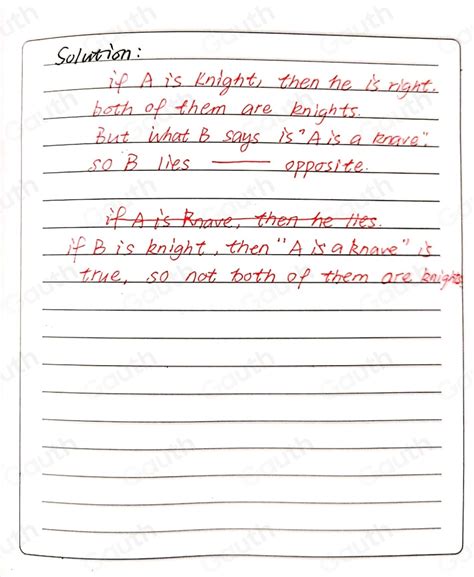 Solution:
if A is Knight, then he is right.
both of them are knights.
But what B says is "A is a knave".
so B lies —— opposite.
if A is Knave, then he lies.
if B is knight, then "A is a knave" is
true, so not both of them are knights